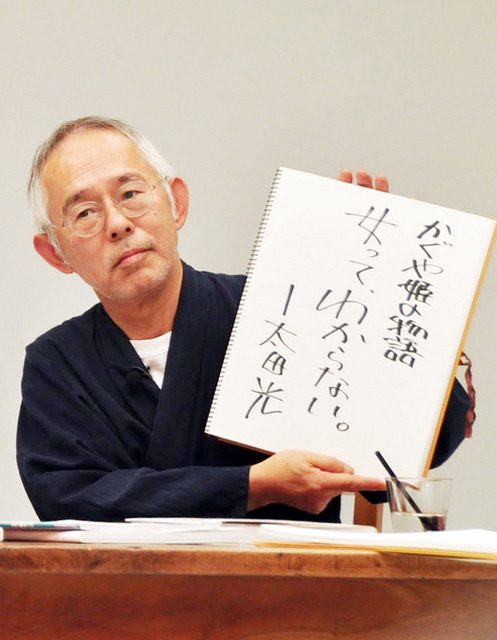 かぐや姫の物語
女って、わからない。
ー太田光